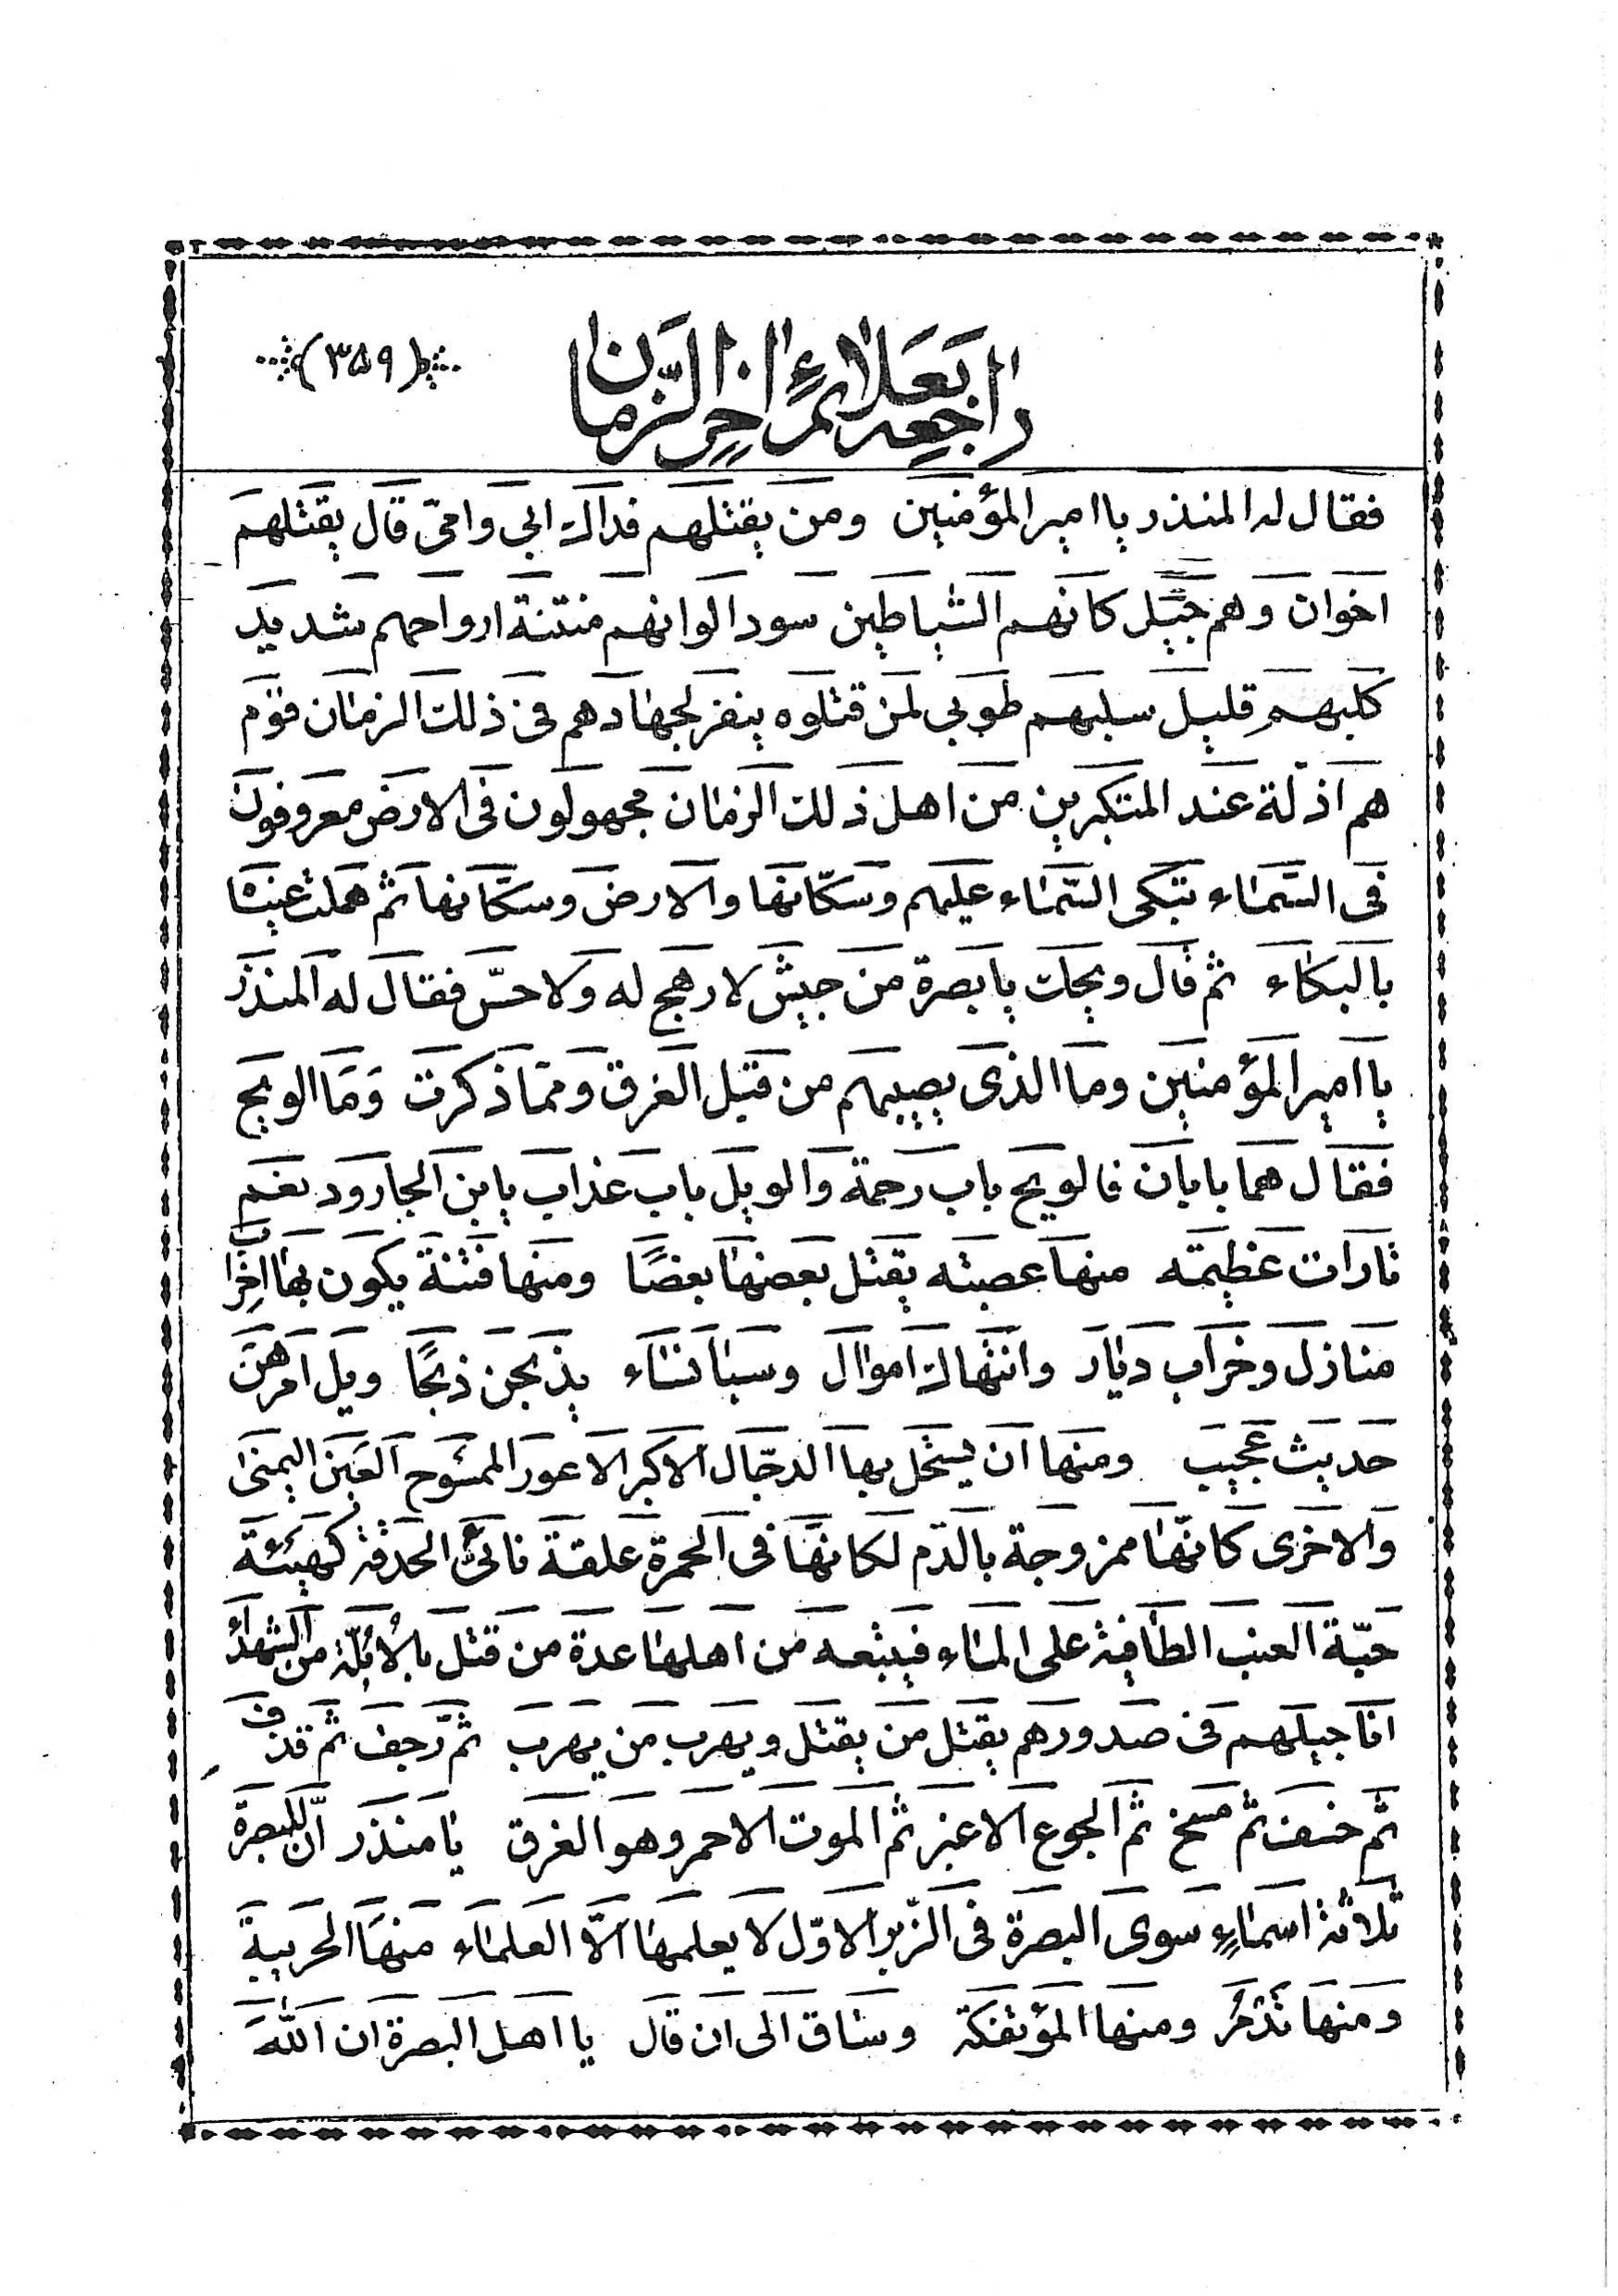 راجعه بعلائم اخر الزمان
(۳۵۹)
فقال له المنذر يا امير المؤمنين ومن يقتلهم فداك ابي وامي قال يقتلهم
اخوان وهم جيل كانهم الشياطين سود الوانهم منتنة ارواحهم شديد
كلبهم قليل سلبهم طوبى لمن قتلوه ينفر لجهادهم فى ذلك الزمان قوم
هم اذلّة عند المتكبرين من اهل ذلك الزمان مجهولون فى الارض معروفون
فى السّماء تبكى السّماء عليهم وسكّانها والارض وسكّانها ثم هملت عيناه
بالبكاء ثم قال ويحك يا بصرة من جيش لا رهج له ولا حسّ فقال له المنذر
يا امير المؤمنين وما الذى يصيبهم من قبل الغرق وممّا ذكرت وما الويح
فقال هما بابان فالويح باب رحمة والويل باب عذاب يابن الجارود نعم
ثارات عظيمه منها عصبته يقتل بعضها بعضًا ومنها فتنة يكون بها اخراب
منازل وخراب ديار وانتهاك اموال وسباء نساء يذبحن ذبحًا ويل امرهنّ
حديث عجيب ومنها ان يستحل بها الدجّال الاكبر الاعور الممسوح العين اليمنى
والاخرى كانّها ممزوجة بالدّم لكانها فى الحمرة علقة ناتئ الحدقة كهيئة
حبّة العنب الطافية على الماء فيتبعه من اهلها عدة من قتل بالاُبُلّة من الشهداء
اناجيلهم فى صدورهم يقتل من يقتل ويهرب من يهرب ثمّ رجف ثم قذف
ثم خسف ثم مسخ ثم الجوع الاغبر ثم الموت الاحمر وهو الغرق يا منذر انّ للبصرة
ثلاثة اسماءٍ سوى البصرة فى الزّبر الاوّل لا يعلمها الّا العلماء منها الحريبة
ومنها تدمر ومنها المؤتفكة وساق الى ان قال يا اهل البصرة ان اللّه